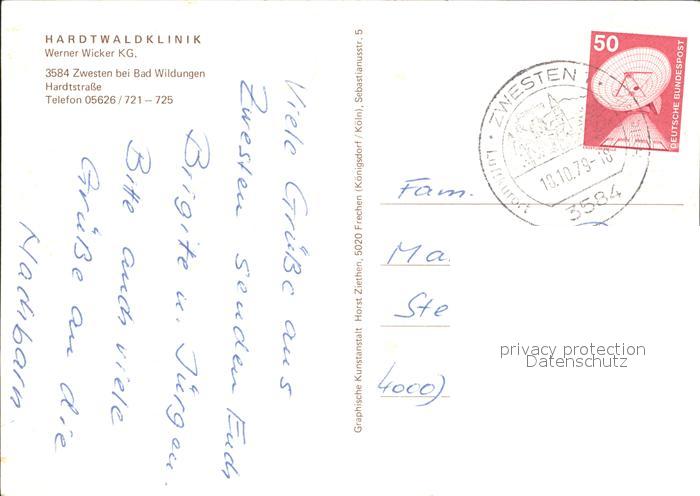 HARDTWALDKLINIK
Werner Wicker KG.
3584 Zwesten bei Bad Wildungen
Hardtstraße
Telefon 05626 / 721 – 725
Viele Grüße aus
Zwesten senden Euch
Brigite u. Jürgen.
Bitte auch viele
Grüße an die
Nachbarn.
Graphische Kunstanstalt Horst Ziethen, 5020 Frechen (Königsdorf / Köln), Sebastianusstr. 5
50
DEUTSCHE BUNDESPOST
ZWESTEN
10.10.79-18
3584
Fam.
Ma
Ste
4000)
privacy protection
Datenschutz